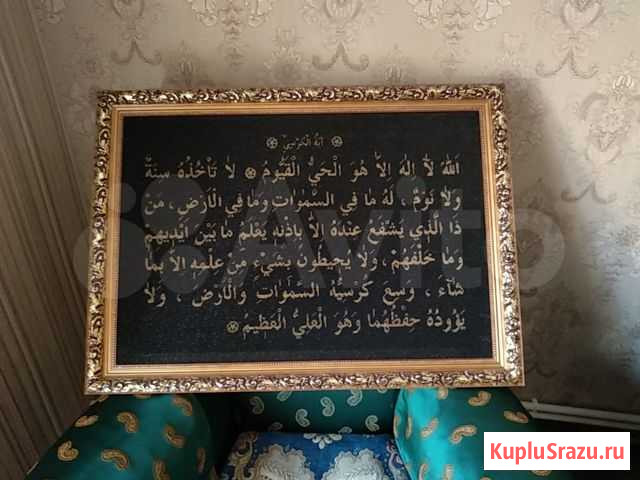 اية الكرسي
اَللهُ لاَ إِلٰهَ إِلاَّ هُوَ الْحَيُّ الْقَيُّومُ لاَ تَأْخُذُهُ سِنَةٌ
وَلاَ نَوْمٌ ، لَهُ مَا فِي السَّمٰوَاتِ وَمَا فِي الْاَرْضِ ، مَنْ
ذَا الَّذِي يَشْفَعُ عِنْدَهُ اِلاَّ بِاِذْنِهِ يَعْلَمُ مَا بَيْنَ اَيْدِيهِمْ
وَمَا خَلْفَهُمْ ، وَلاَ يُحِيطُونَ بِشَيْءٍ مِنْ عِلْمِهِ اِلاَّ بِمَا
شَاءَ ، وَسِعَ كُرْسِيُّهُ السَّمٰوَاتِ وَالْاَرْضَ ، وَلاَ
يَؤُودُهُ حِفْظُهُمَا وَهُوَ الْعَلِيُّ الْعَظِيمُ
Avito
KupluSrazu.ru